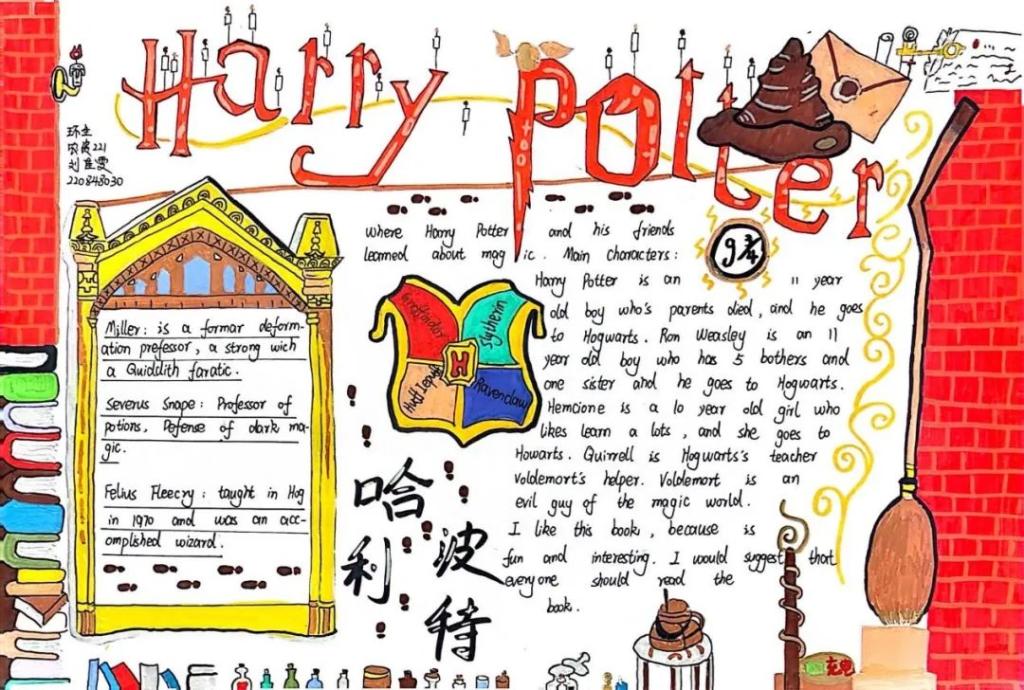 Harry Potter
220848030
where Harry Potter and his friends
learned about magic. Main characters:
9¾
Harry Potter is an 11 year
old boy who's parents died, and he goes
to Hogwarts. Ron Weasley is an 11
year old boy who has 5 bothers and
one sister and he goes to Hogwarts.
Hemcione is a 10 year old girl who
likes learn a lots, and she goes to
Howarts. Quirrell is Hogwarts's teacher
Voldemort's helper. Voldemort is an
evil guy of the magic world.
I like this book, because is
fun and interesting. I would suggest that
everyone should read the
book.
Gryffindor
Slytherin
H
Hufflepuff
Ravenclaw
Miller: is a formar deform-
ation prefessor, a strong wich
a Quiddith faratic.
Severus Snape: Professor of
potions, Defense of dark ma-
gic.
Felius Fleecry: taught in Hog
in 1970 and was an acc-
omplished wizard.
哈利
波特